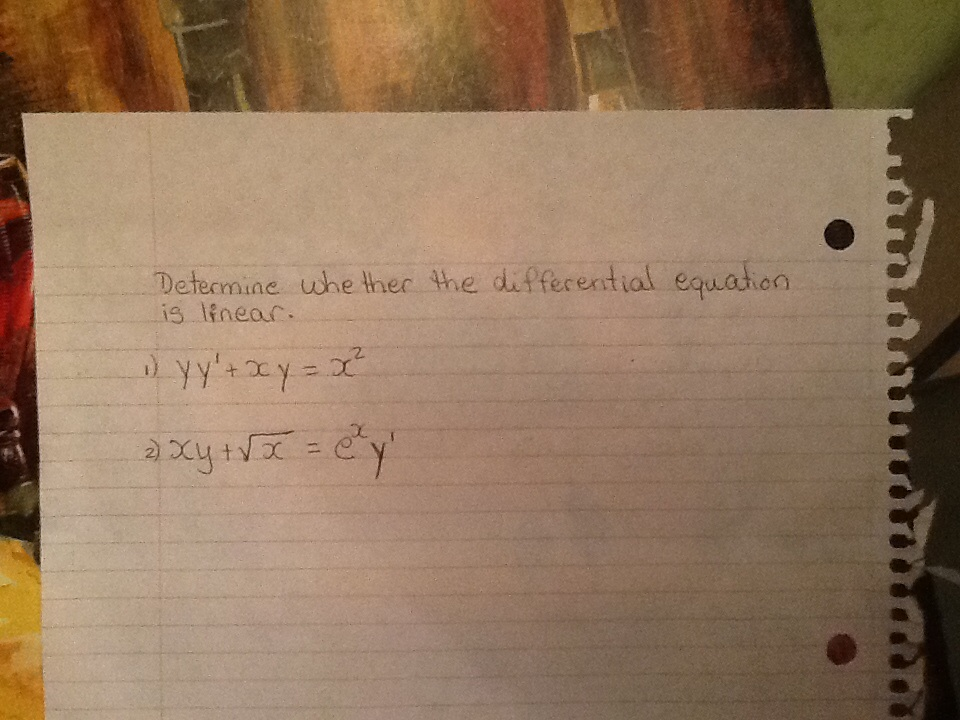 Determine whether the differential equation
is linear.
1) yy' + xy = x²
2) xy + √x = eˣy'